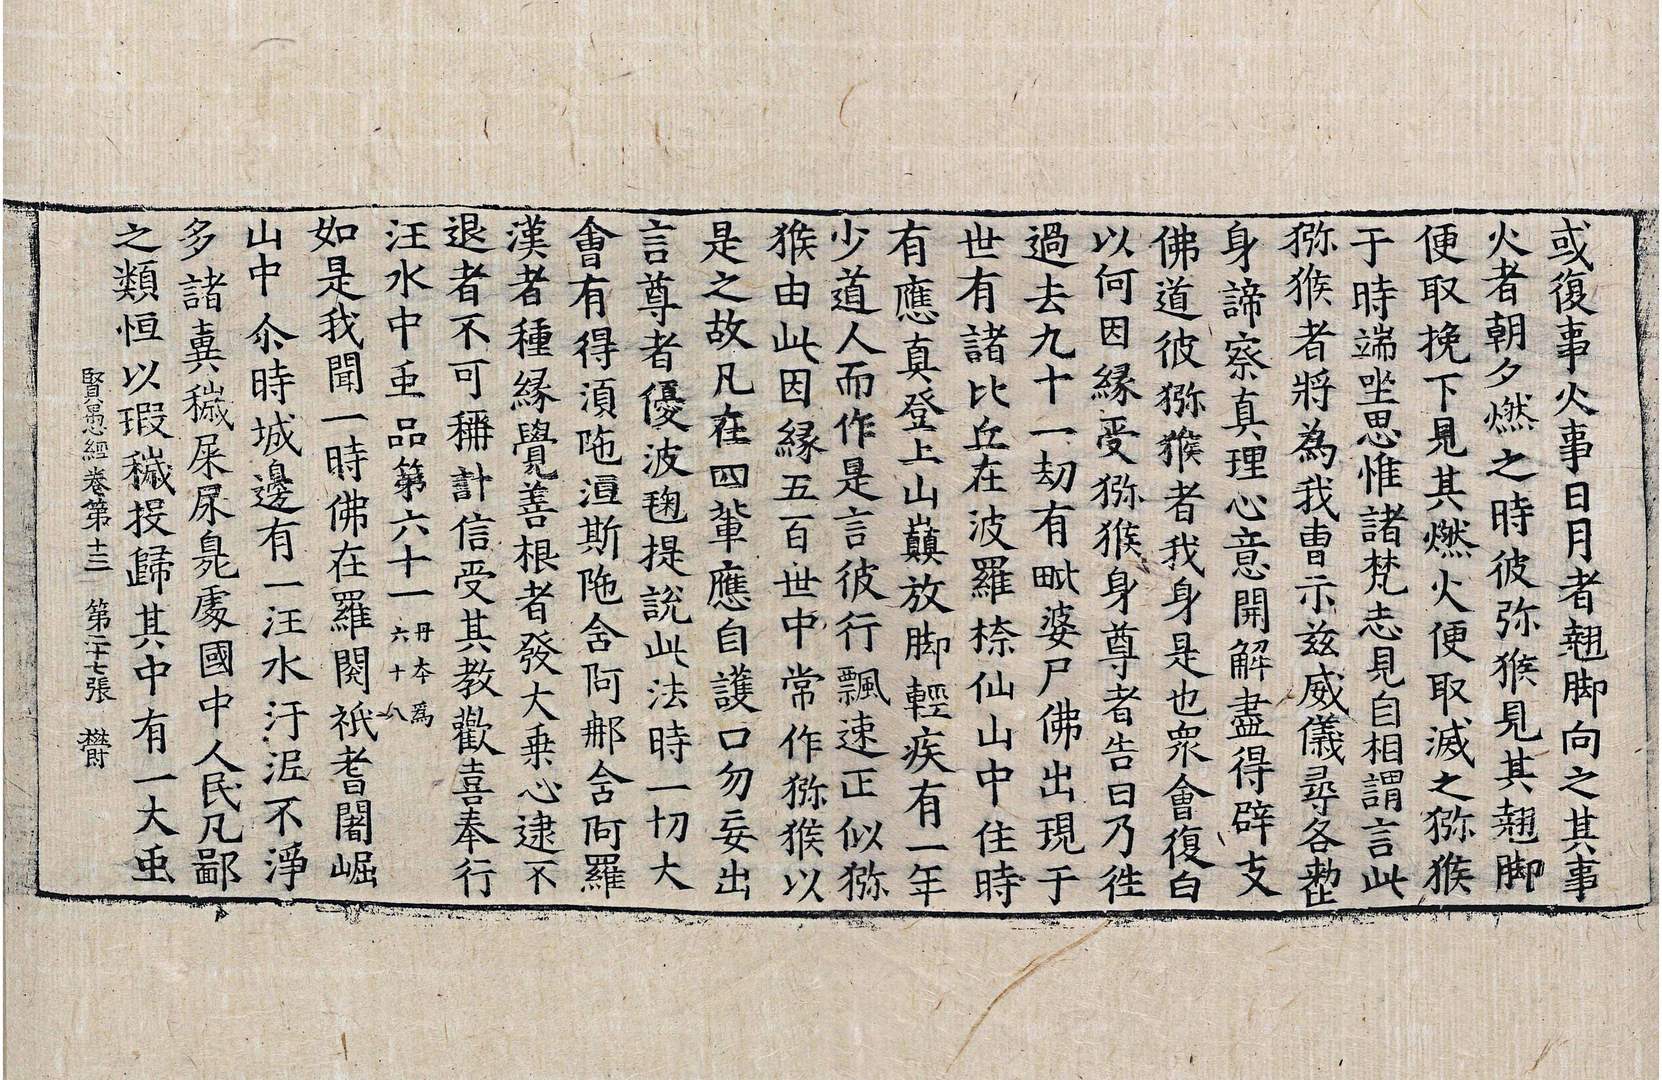 或復事火事日月者翹脚向之其事
火者朝夕燃之時彼弥猴見其翹脚
便取挽下見其燃火便取滅之猕猴
于時端坐思惟諸梵志見自相謂言此
猕猴者將為我曺示兹威儀尋各勑𫝹
身諦察真理心意開解盡得辟支
佛道彼猕猴者我身是也衆會復白
以何因緣受猕猴身尊者告曰乃徃
過去九十一劫有毗婆尸佛出現于
世有諸比丘在波羅㮈仙山中住時
有應真登上山巔放脚輕疾有一年
少道人而作是言彼行飄速正似猕
猴由此因緣五百世中常作猕猴以
是之故凡在四輩應自護口勿妄出
言尊者優波毱提說此法時一切大
會有得湏陁洹斯陁含阿𨚗含阿羅
漢者種緣覺善根者發大乗心逮不
退者不可稱計信受其教歡喜奉行
汪水中䖝品第六十一丹夲為六十八
如是我聞一時佛在羅閱祇耆闍崛
山中尒時城邊有一汪水汙泥不淨
多諸糞穢屎尿臰處國中人民凡鄙
之類恒以瑕穢投歸其中有一大䖝
賢愚經卷第十三　第二十七張　欝